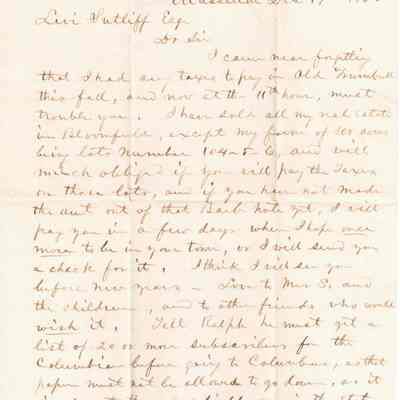 Massillon Dec 19
Levi Sutliff Esq
Dr Sir
I came near forgetting
that I had any taxes to pay in Old Trumbull
this fall, and now at the 11th hour, must
trouble you. I have sold all my real estate
in Bloomfield, except my farm of 300 acres
being lots Number 104-5-6, and will
much obliged if you will pay the taxes
on those lots, and if you have not made
the amt out of that Barb note yet, I will
pay you in a few days when I hope once
more to be in your town, or I will send you
a check for it. I think I will see you
before New Years - Love to Mrs S. and
the children, and to other friends who would
wish it. Tell Ralph he must get a
list of 20 or more subscribers for the
Columbian before going to Columbus, as that
paper must not be allowed to go down, as it
is the state